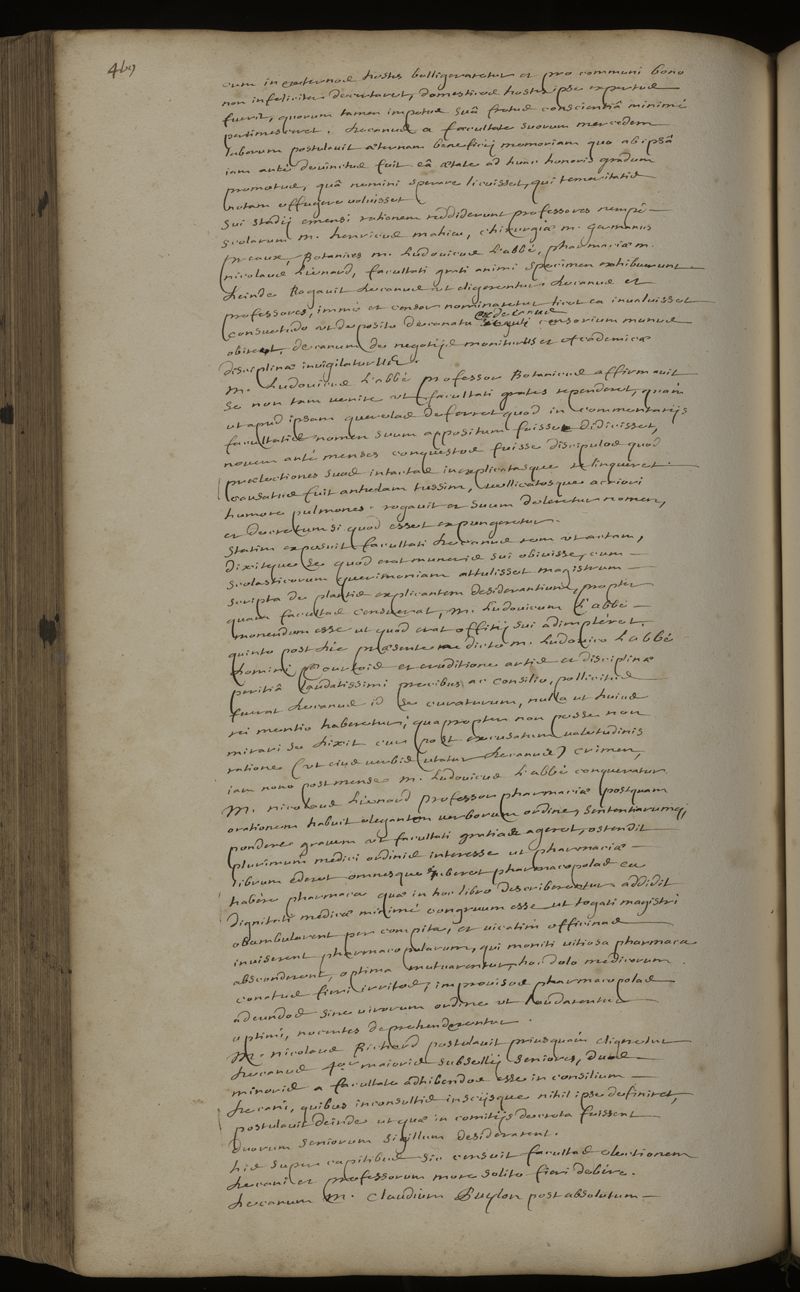 469
cum in externos hostis belligeraretur et pro communi bono
non infeliciter decertaret, domesticos hostis ipse expertus
fuerit, quorum tamen impetus suâ fretus conscientiâ minimè
pertimesceret. Decanus a facultate suorum mercedem
laborum postulavit æternam beneficij memoriam quo ab ipsâ
iam antè devinctus fuit eâ ætate ad hunc honoris gradum
promotus, quâ nemini sperare licuisset, qui temeritatis
notam effugere voluisset
Sui stadij emensi rationem reddiderunt professores nempè
scolarum M. Henricus Mahieu, chirurgiæ M. Germanus
Preaux, Botanices M. Ludovicus L'abbé, pharmaciæ M.
Nicolaus Lienard, facultati grati animi specimen exhibuerunt
Deinde Rogavit Decanus ut eligerentur Decanus et
professores, immò et censor nominaretur licet ea invaluisset
consuetudo ut deposito decanatu ex decanus censorium munus
obiret, decanum de negotijs moniturus et Academicæ
disciplinæ invigilaturus.
M. Ludovicus L'abbé professor Botanicus affirmavit
se non tam venire ut facultati grates rependeret, quàm
ut apud ipsam querelas deferret quod in commentarijs
facultatis nomen suum appositum fuisse didicisset,
novem antè menses conquestos fuisse discipulos quod
prælectiones suas intactas inexplicatasque relinqueret.
causatus fuit anhelam tussim, vellicatosque acriori
humore pulmones. rogavit et suum deleretur nomen,
et decretum si quod esset expungeretur.
Statim exposuit facultati Decanus rem ut actam,
dixitque se quod erat muneris sui obivisse, cum
scolasticorum querimoniam attulisset magistrum
scripta de plantis explicantem desiderantium, propter
quam facultas censuerat, M. Ludovicum L'abbé
monendum esse ut quod erat officij sui adimpleret.
quinto post die præsente dicto M. Ludovico L'abbé
Domini et eruditione artis et disciplinæ
peritiâ laudatissimi precibus ac consilio, pollicitus
fuerat Decanus id se curaturum, nulla ut huius
rei mentio haberetur; quapropter non posse non
mirari se dixit cur post excusatum valetudinis
ratione (ut eius verbis utatur Decanus) crimen,
iam nono post mense M. Ludovicus L'abbé conqueratur
M. Nicolaus Lienard professor pharmaciæ postquam
orationem habuit elegantem verborum ordine, sententiarumq,
pondere gravem ut facultati gratias ageret, ostendit
plurimùm medici ordinis interesse ut pharmaciæ
librum ederet omnesque iuberet pharmacopolas ea
habere pharmaca quæ in hoc libro describerentur addidit
Dignitati medicæ minimè congruum esse ut togati magistri
obambularent per compita, et vicatim officinas
inviserent pharmacopolarum, qui moniti vitiosa pharmaca
absconderent, optima mutuarentur, hoc dolo medicorum
conatus fieri irritos, improvisos pharmacopolas
adeundos sine virorum ordine ut laudarentur
optimi, nocentes deprehenderentur.
M. Nicolaus Richard postulavit priusquàm eligeretur
Decanus 4or maioris subsellij seniores, duos
minoris a facultate adhibendos esse in consilium
Decani, quibus inconsultis insciisque nihil ipse definiret,
postulavit deinde ut quæ in comitijs decreta fuissent
duorum seniorum sigillum desiderarent.
his super capitibus sic censuit facultas electionem
Decani et professorum more solito fieri debere.
Decanum M. Claudium Puylon post absolutum